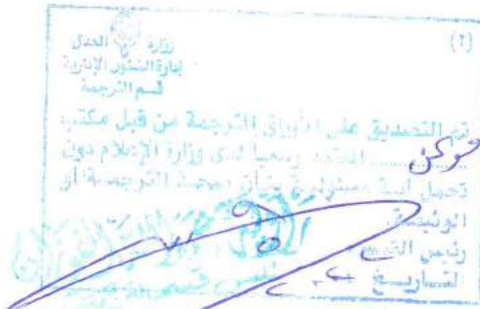 (٢)
وزارة العدل
إدارة الشئون الإدارية
قسم الترجمة
تم التصديق على الأوراق المترجمة من قبل مكتب
المعتمد رسميا لدى وزارة الإعلام دون
تحمل أية مسئولية بشأن صحة الترجمة أو
الوثيقة.
رئيس القسم
التاريخ